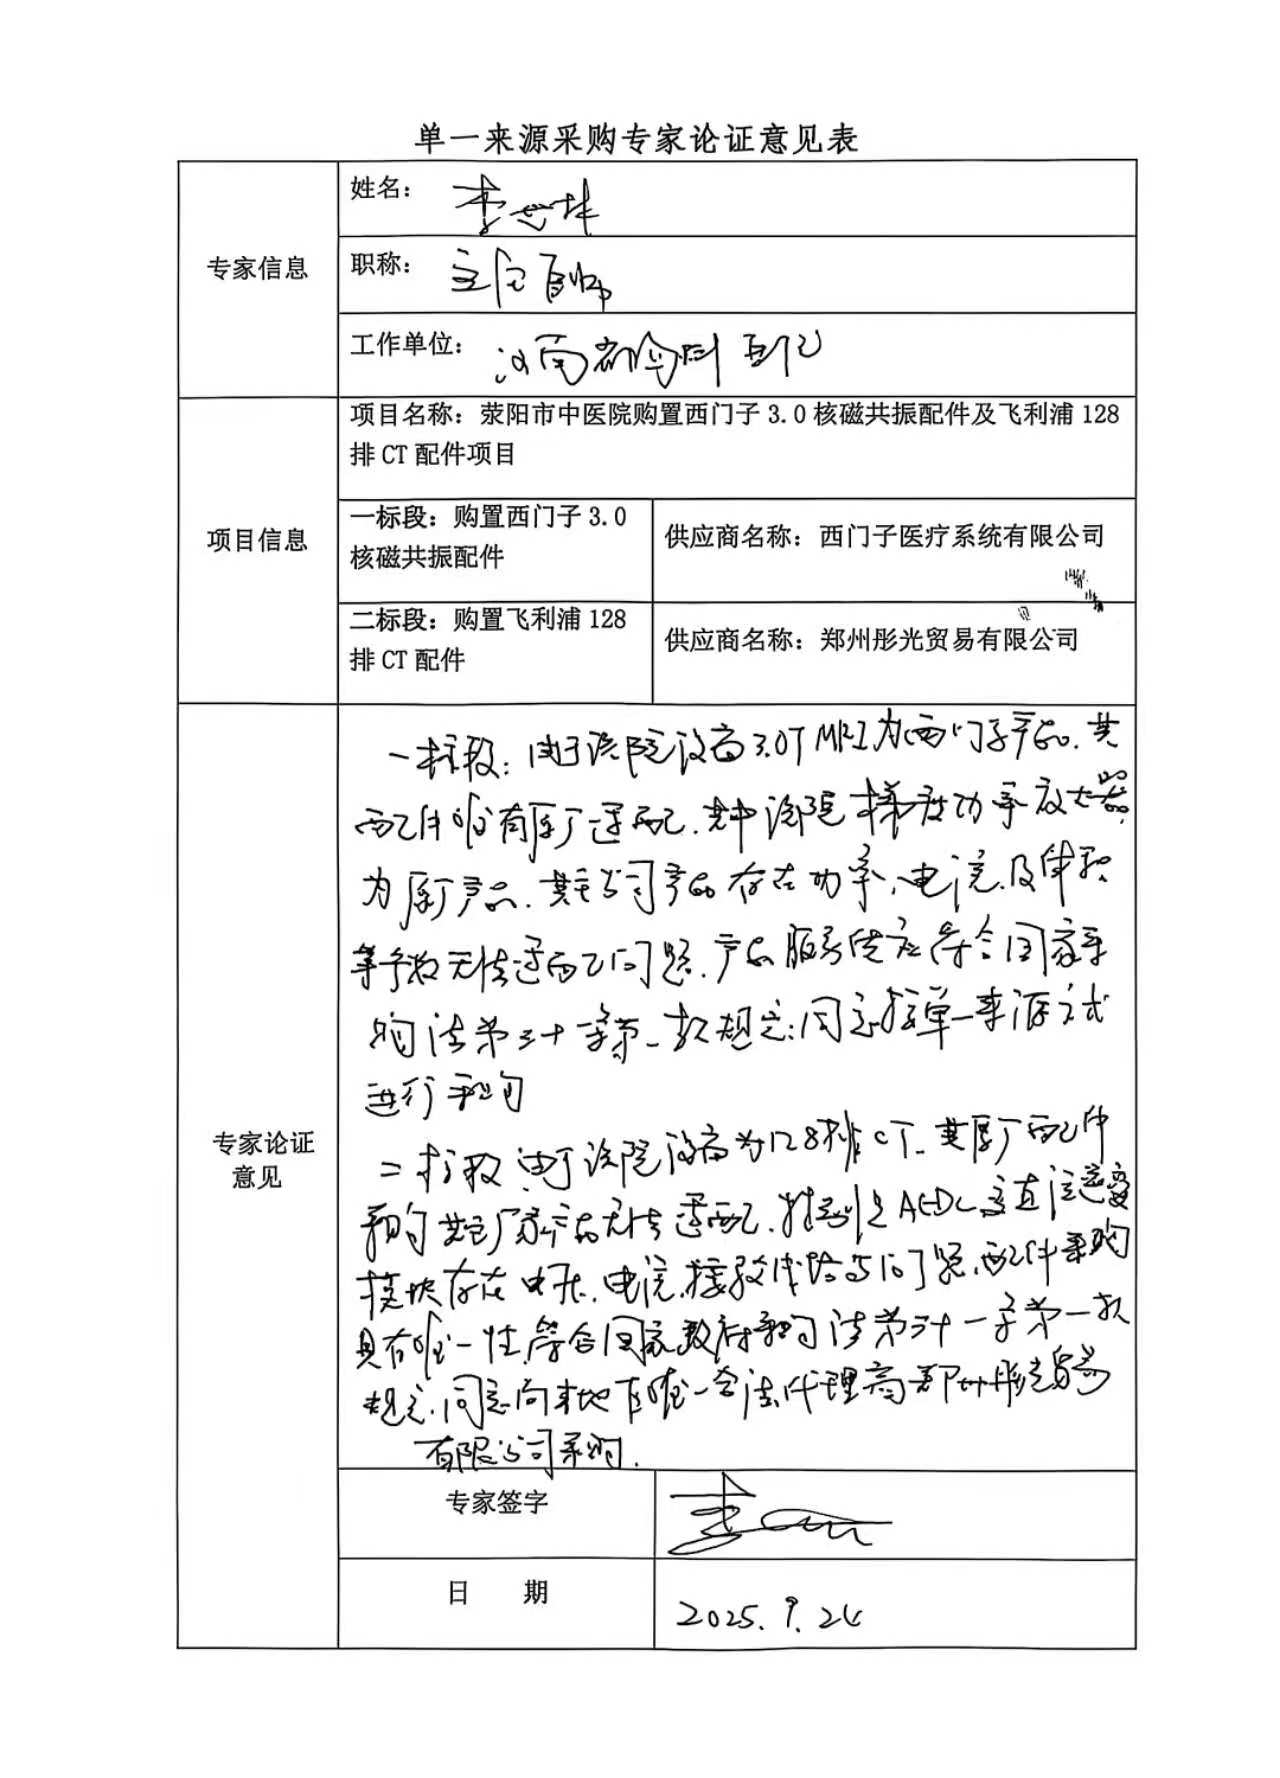 单一来源采购专家论证意见表
专家信息
姓名：李
职称：主任
工作单位：河南省
项目信息
项目名称：荥阳市中医院购置西门子 3.0 核磁共振配件及飞利浦 128
排 CT 配件项目
一标段：购置西门子 3.0
核磁共振配件
供应商名称：西门子医疗系统有限公司
二标段：购置飞利浦 128
排 CT 配件
供应商名称：郑州彤光贸易有限公司
专家论证
意见
一标段：由于该院设备3.0T MRI为西门子产品，其
配件唯有原厂适配，其中该院梯度功率放大器
为原厂产品，其它公司产品存在功率、电流、及体积
等参数无法适配问题，产品服务 符合国家采
购法第三十一条第一款规定；同意按单一来源方式
进行采购
二标段，由于该院设备为128排CT，其原厂配件
采购其它厂家产品无法适配，特别是 交直流逆变
模块存在电压、电流、接 等问题，配件采购
具有唯一性，符合国家政府采购法第三十一条第一款
规定，同意向本地区唯一合法代理商郑州彤光贸易
有限公司采购．
专家签字
李
日 期
2025.9.24